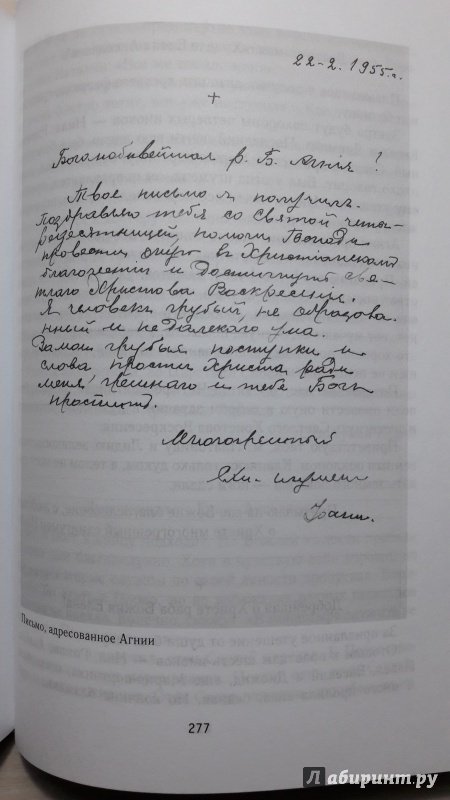 22-2. 1955.г.
+
Боголюбивейшая р. Б. Агнія!
Твое письмо я получилъ.
Поздравляю тебя со святой четы-
редесятницей, помоги Господи
провести оную въ Христіанском
благочестіи и достигнуть свѣ-
тлаго Христова Воскресенія.
Я человекъ грубый, не образова-
нный и не далекого ума.
За мои грубыя поступки и
слова прости Христа ради
меня грешнаго и тебе Богъ
простит.
Многогрешный
схи-игумен
Іоанн.
Письмо, адресованное Агнии
277
Лабиринт.ру